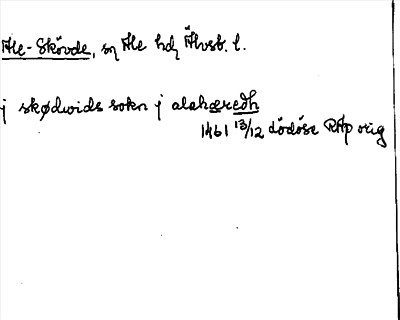 Ale-Skövde, sn Ale hd, Älvsb. l.
j skødwids sokn j alahæredh
1461 13/12 Lödöse RAp orig